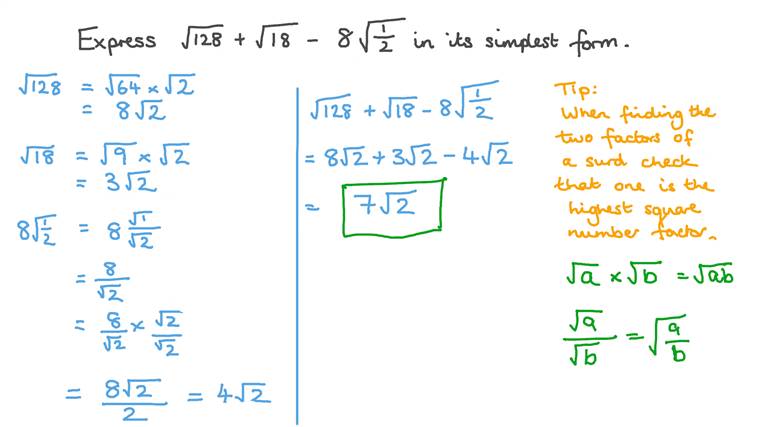 Express √128 + √18 − 8√(1/2) in its simplest form.
√128 = √64 × √2
= 8√2
√18 = √9 × √2
= 3√2
8√(1/2) = 8 √1/√2
= 8/√2
= 8/√2 × √2/√2
= 8√2/2 = 4√2
√128 + √18 − 8√(1/2)
= 8√2 + 3√2 − 4√2
= 7√2
Tip:
When finding the
two factors of
a surd check
that one is the
highest square
number factor.
√a × √b = √ab
√a/√b = √(a/b)